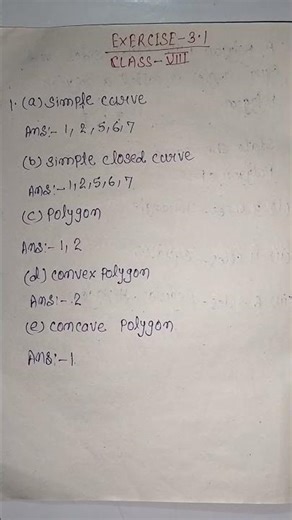 EXERCISE-3.1
CLASS-VIII
1. (a) Simple curve
Ans:- 1, 2, 5, 6, 7
(b) Simple closed curve
Ans:- 1, 2, 5, 6, 7
(c) Polygon
Ans:- 1, 2
(d) convex polygon
Ans:- 2
(e) concave Polygon
Ans:- 1.